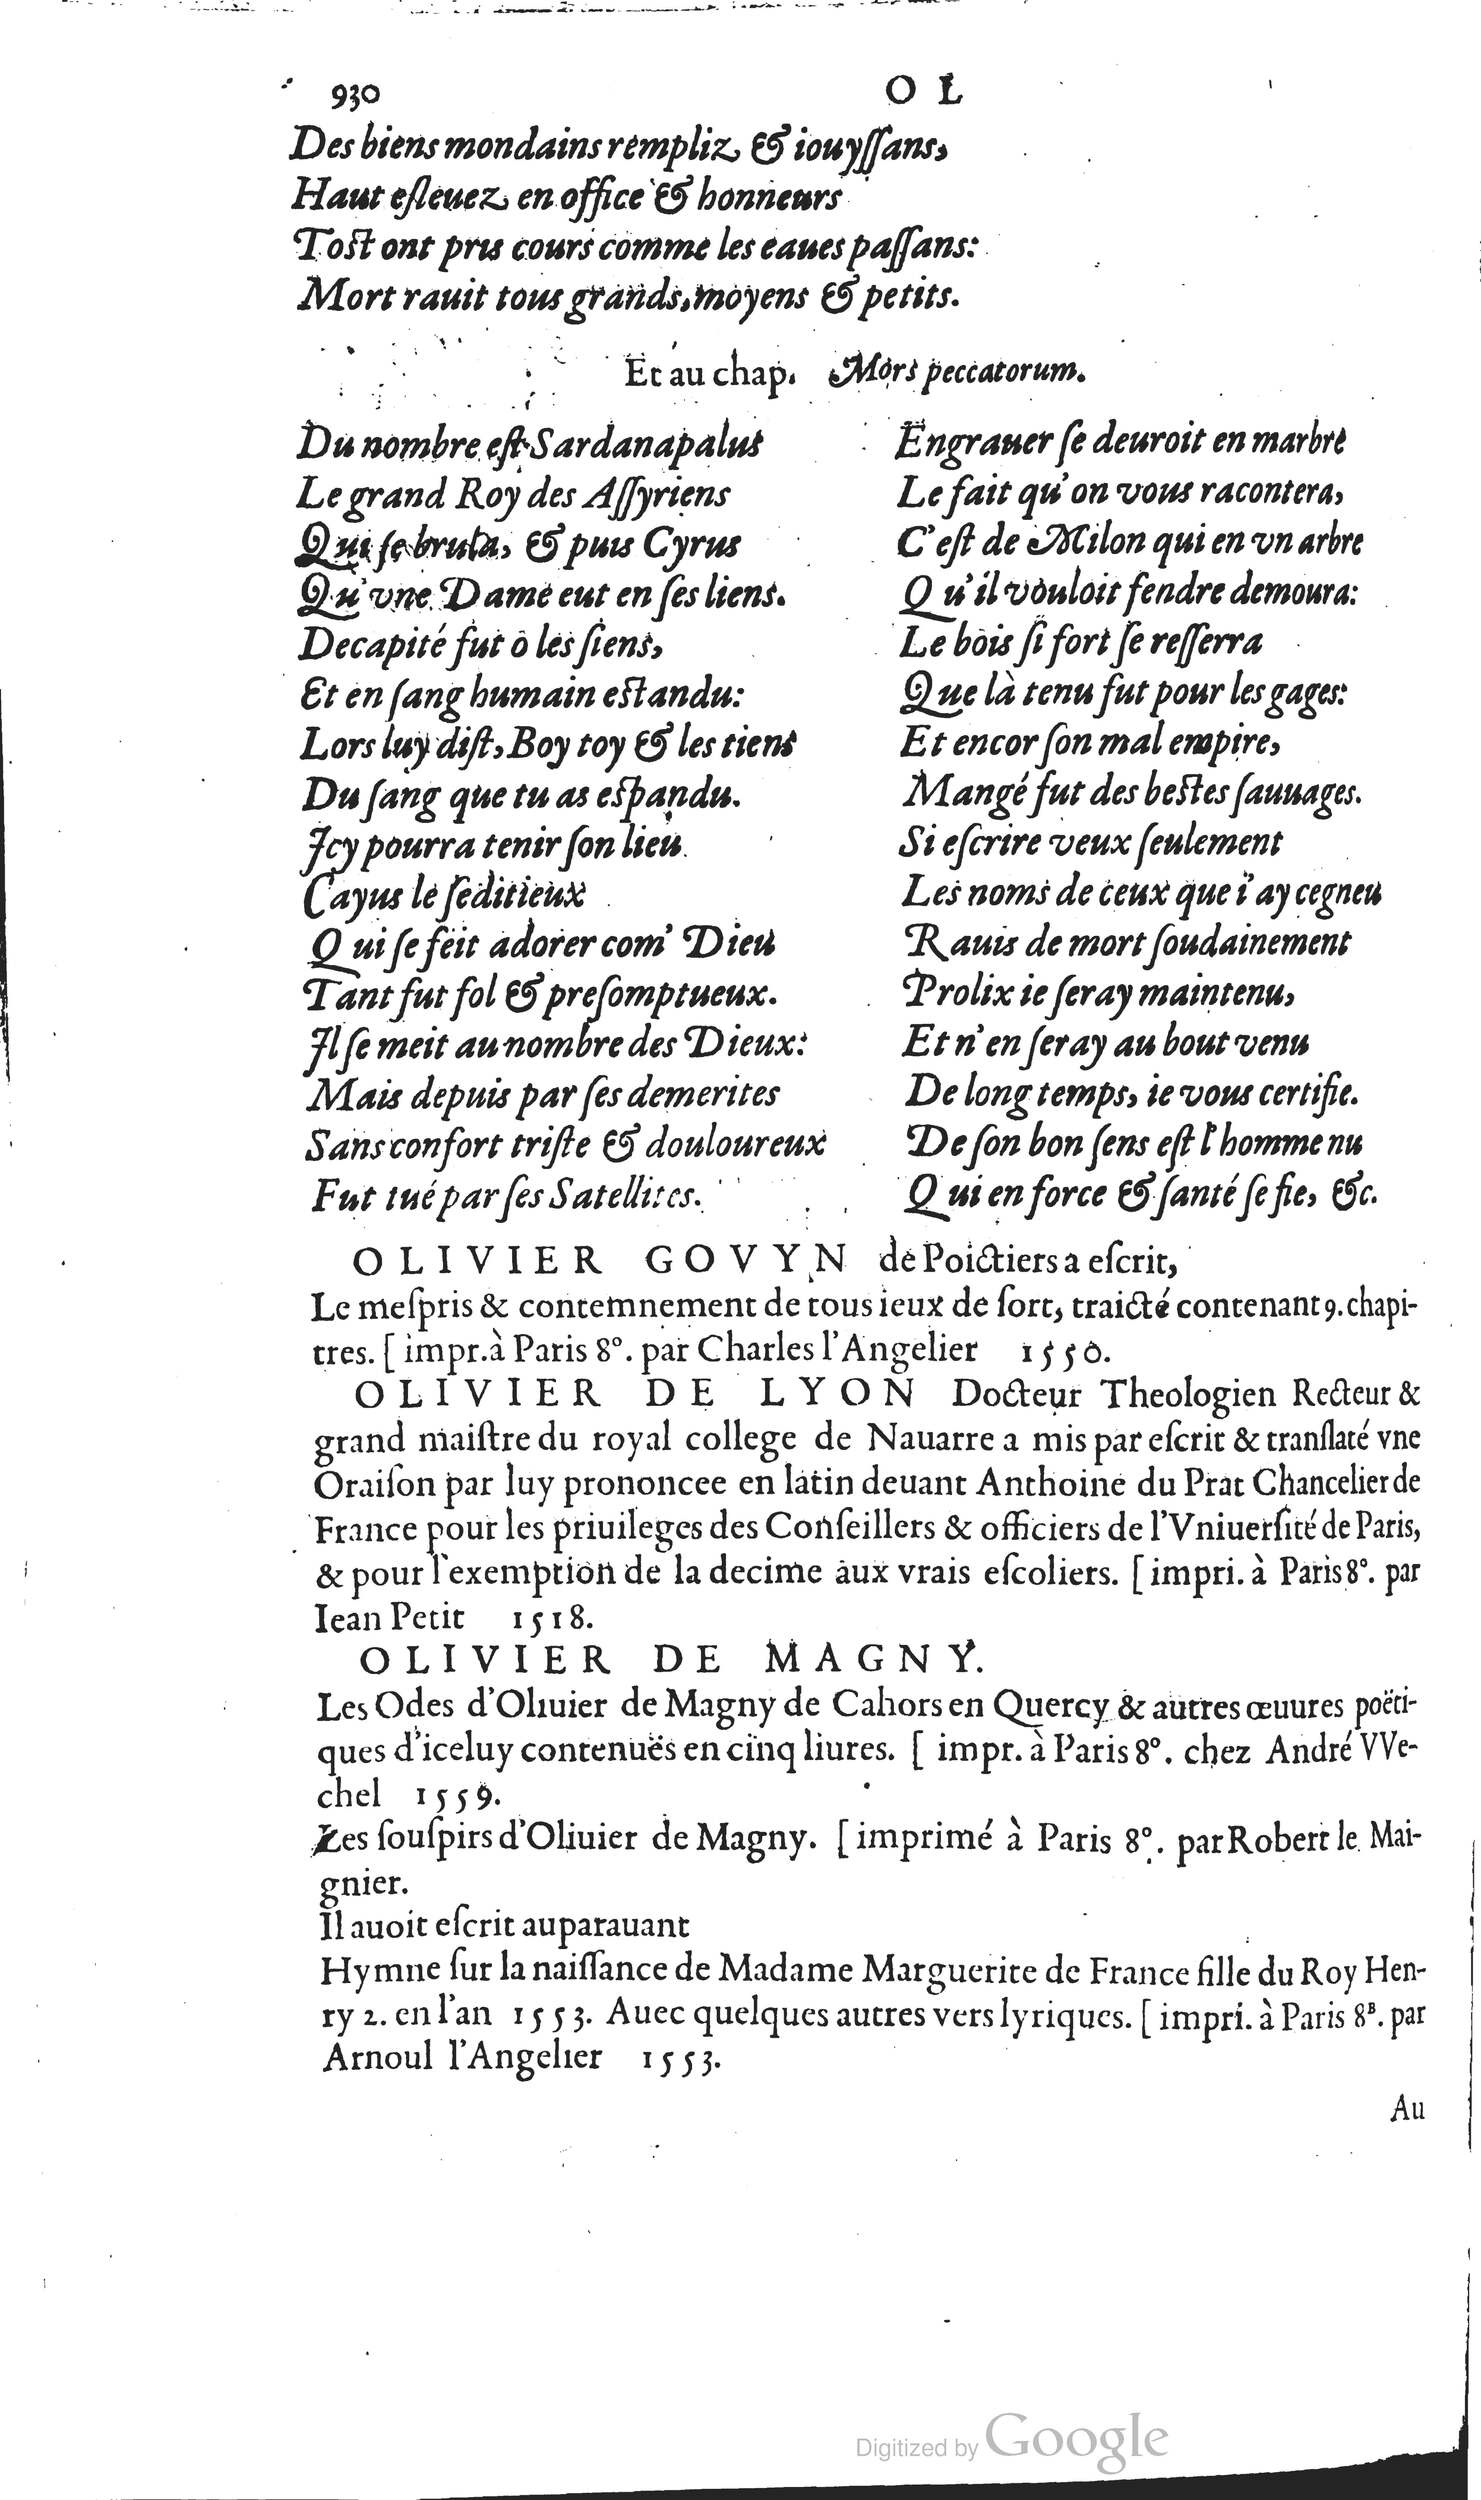 930 O L
Des biens mondains rempliz & iouyſſans,
Haut eſleuez en office & honneurs
Toſt ont pris cours comme les eaues paſſans:
Mort rauit tous grands, moyens & petits.
Et au chap. Mors peccatorum.
Du nombre eſt Sardanapalus
Le grand Roy des Aſſyriens
Qui ſe brula, & puis Cyrus
Qu'vne Dame eut en ſes liens.
Decapité fut ô les ſiens,
Et en ſang humain eſtandu:
Lors luy diſt, Boy toy & les tiens
Du ſang que tu as eſpandu.
Icy pourra tenir ſon lieu
Cayus le ſeditieux
Qui ſe feit adorer com' Dieu
Tant fut fol & preſomptueux.
Il ſe meit au nombre des Dieux:
Mais depuis par ſes demerites
Sans confort triſte & douloureux
Fut tué par ſes Satellites.
Engrauer ſe deuroit en marbre
Le fait qu'on vous racontera,
C'eſt de Milon qui en vn arbre
Qu'il vouloit fendre demoura:
Le bois ſi fort ſe reſſerra
Que là tenu fut pour les gages:
Et encor ſon mal empire,
Mangé fut des beſtes ſauuages.
Si eſcrire veux ſeulement
Les noms de ceux que i'ay cegneu
Rauis de mort ſoudainement
Prolix ie ſeray maintenu,
Et n'en ſeray au bout venu
De long temps, ie vous certifie.
De ſon bon ſens eſt l'homme nu
Qui en force & ſanté ſe fie, &c.
OLIVIER GOVYN de Poictiers a eſcrit,
Le meſpris & contemnement de tous ieux de ſort, traicté contenant 9. chapi-
tres. [ impr. à Paris 8°. par Charles l'Angelier 1550.
OLIVIER DE LYON Docteur Theologien Recteur &
grand maiſtre du royal college de Nauarre a mis par eſcrit & tranſlaté vne
Oraiſon par luy prononcee en latin deuant Anthoine du Prat Chancelier de
France pour les priuileges des Conſeillers & officiers de l'Vniuerſité de Paris,
& pour l'exemption de la decime aux vrais eſcoliers. [ impri. à Paris 8°. par
Iean Petit 1518.
OLIVIER DE MAGNY.
Les Odes d'Oliuier de Magny de Cahors en Quercy & autres œuures poëti-
ques d'iceluy contenuës en cinq liures. [ impr. à Paris 8°. chez André VVe-
chel 1559.
Les ſouſpirs d'Oliuier de Magny. [ imprimé à Paris 8°. par Robert le Mai-
gnier.
Il auoit eſcrit auparauant
Hymne ſur la naiſſance de Madame Marguerite de France fille du Roy Hen-
ry 2. en l'an 1553. Auec quelques autres vers lyriques. [ impri. à Paris 8°. par
Arnoul l'Angelier 1553.
Au
Digitized by Google